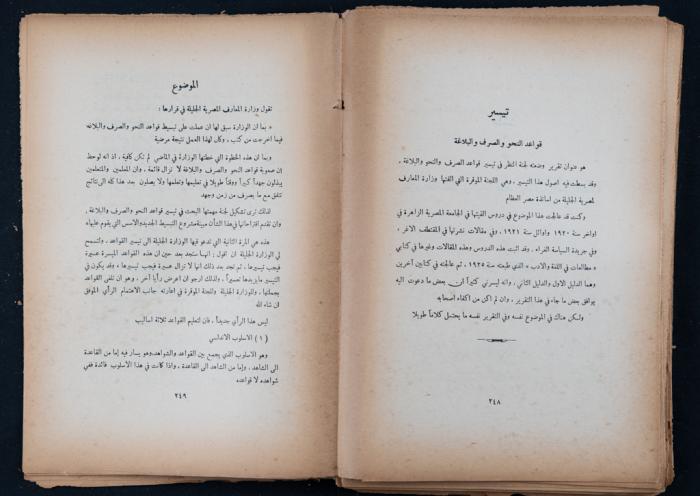 تيسير
قواعد النحو والصرف والبلاغة
هو عنوان تقرير وضعته لجنة النظر في تيسير قواعد الصرف والنحو والبلاغة ،
وقد بسطت فيه اصول هذا التيسير ، وهي اللجنة الموقرة التي ألفتها وزارة المعارف
المصرية الجليلة من اساتذة مصر العظام
وكنت قد عالجت هذا الموضوع في دروس القيتها في الجامعة المصرية الزاهرة في
اواخر سنة ١٩٢٠ واوائل سنة ١٩٢١ ، وفي مقالات نشرتها في المقتطف الاغر ،
وفي جريدة السياسة الغراء . وقد اثبت هذه الدروس وهذه المقالات وغيرها في كتابي
« مطالعات في اللغة والادب » الذي طبعته سنة ١٩٢٥ ، ثم عالجته في كتابين آخرين
وهما الدليل الاول والدليل الثاني ، وانه ليسرني كثيراً ان بعض ما دعوت اليه
يوافق بعض ما جاء في هذا التقرير ، وان لم اكن من اكفاء اصحابه
ولكن هناك في الموضوع نفسه وفي التقرير نفسه ما يحتمل كلاماً طويلا
٢٤٨
الموضوع
تقول وزارة المعارف المصرية الجليلة في قرارها :
« بما ان الوزارة سبق لها ان عملت على تبسيط قواعد النحو والصرف والبلاغة
فيما اخرجت من كتب ، وكان لهذا العمل نتيجة مرضية
وبما ان هذه الخطوة التي خطتها الوزارة في الماضي لم تكن كافية ، اذ انه لوحظ
ان صعوبة قواعد النحو والصرف والبلاغة لا تزال قائمة ، وان المعلمين والمتعلمين
يبذلون جهداً كبيراً ووقتاً طويلا في تعليمها وتعلمها ولا يصلون بعد هذا كله الى نتائج
تتفق مع ما يصرف من زمن وجهد
لذلك ترى تشكيل لجنة مهمتها البحث في تيسير قواعد النحو والصرف والبلاغة ،
وان تقدم اقتراحاتها في هذا الشأن مبينة مشروع التبسيط الجديد والاسس التي يقوم عليها »
هذه هي المرة الثانية التي تدعو فيها الوزارة الجليلة الى تيسير القواعد ، ولتسمح
لي الوزارة الجليلة ان اقول : انها ستجد بعد حين ان هذه القواعد الميسرة عسيرة
فيجب تيسيرها ، ثم تجد بعد ذلك انها لا تزال عسيرة فيجب تيسيرها ، وقد يكون في
التيسير ما يزيدها تعسيراً ، ولذلك ارجو ان اعرض رأياً آخر ، وهو ان تلغى القواعد
بجملتها ، وللوزارة الجليلة وللجنة الموقرة في اعارته جانب الاهتمام الرأي الموفق
ان شاء الله
ليس هذا الرأي جديداً ، فان لتعليم القواعد ثلاثة اساليب
( ١ ) الاسلوب الاندلسي
وهو الاسلوب الذي يجمع بين القواعد والشواهد، وهو يسار فيه إما من القاعدة
الى الشاهد ، وإما من الشاهد الى القاعدة ، واذا كانت في هذا الاسلوب فائدة ففي
شواهده لا قواعده
٢٤٩